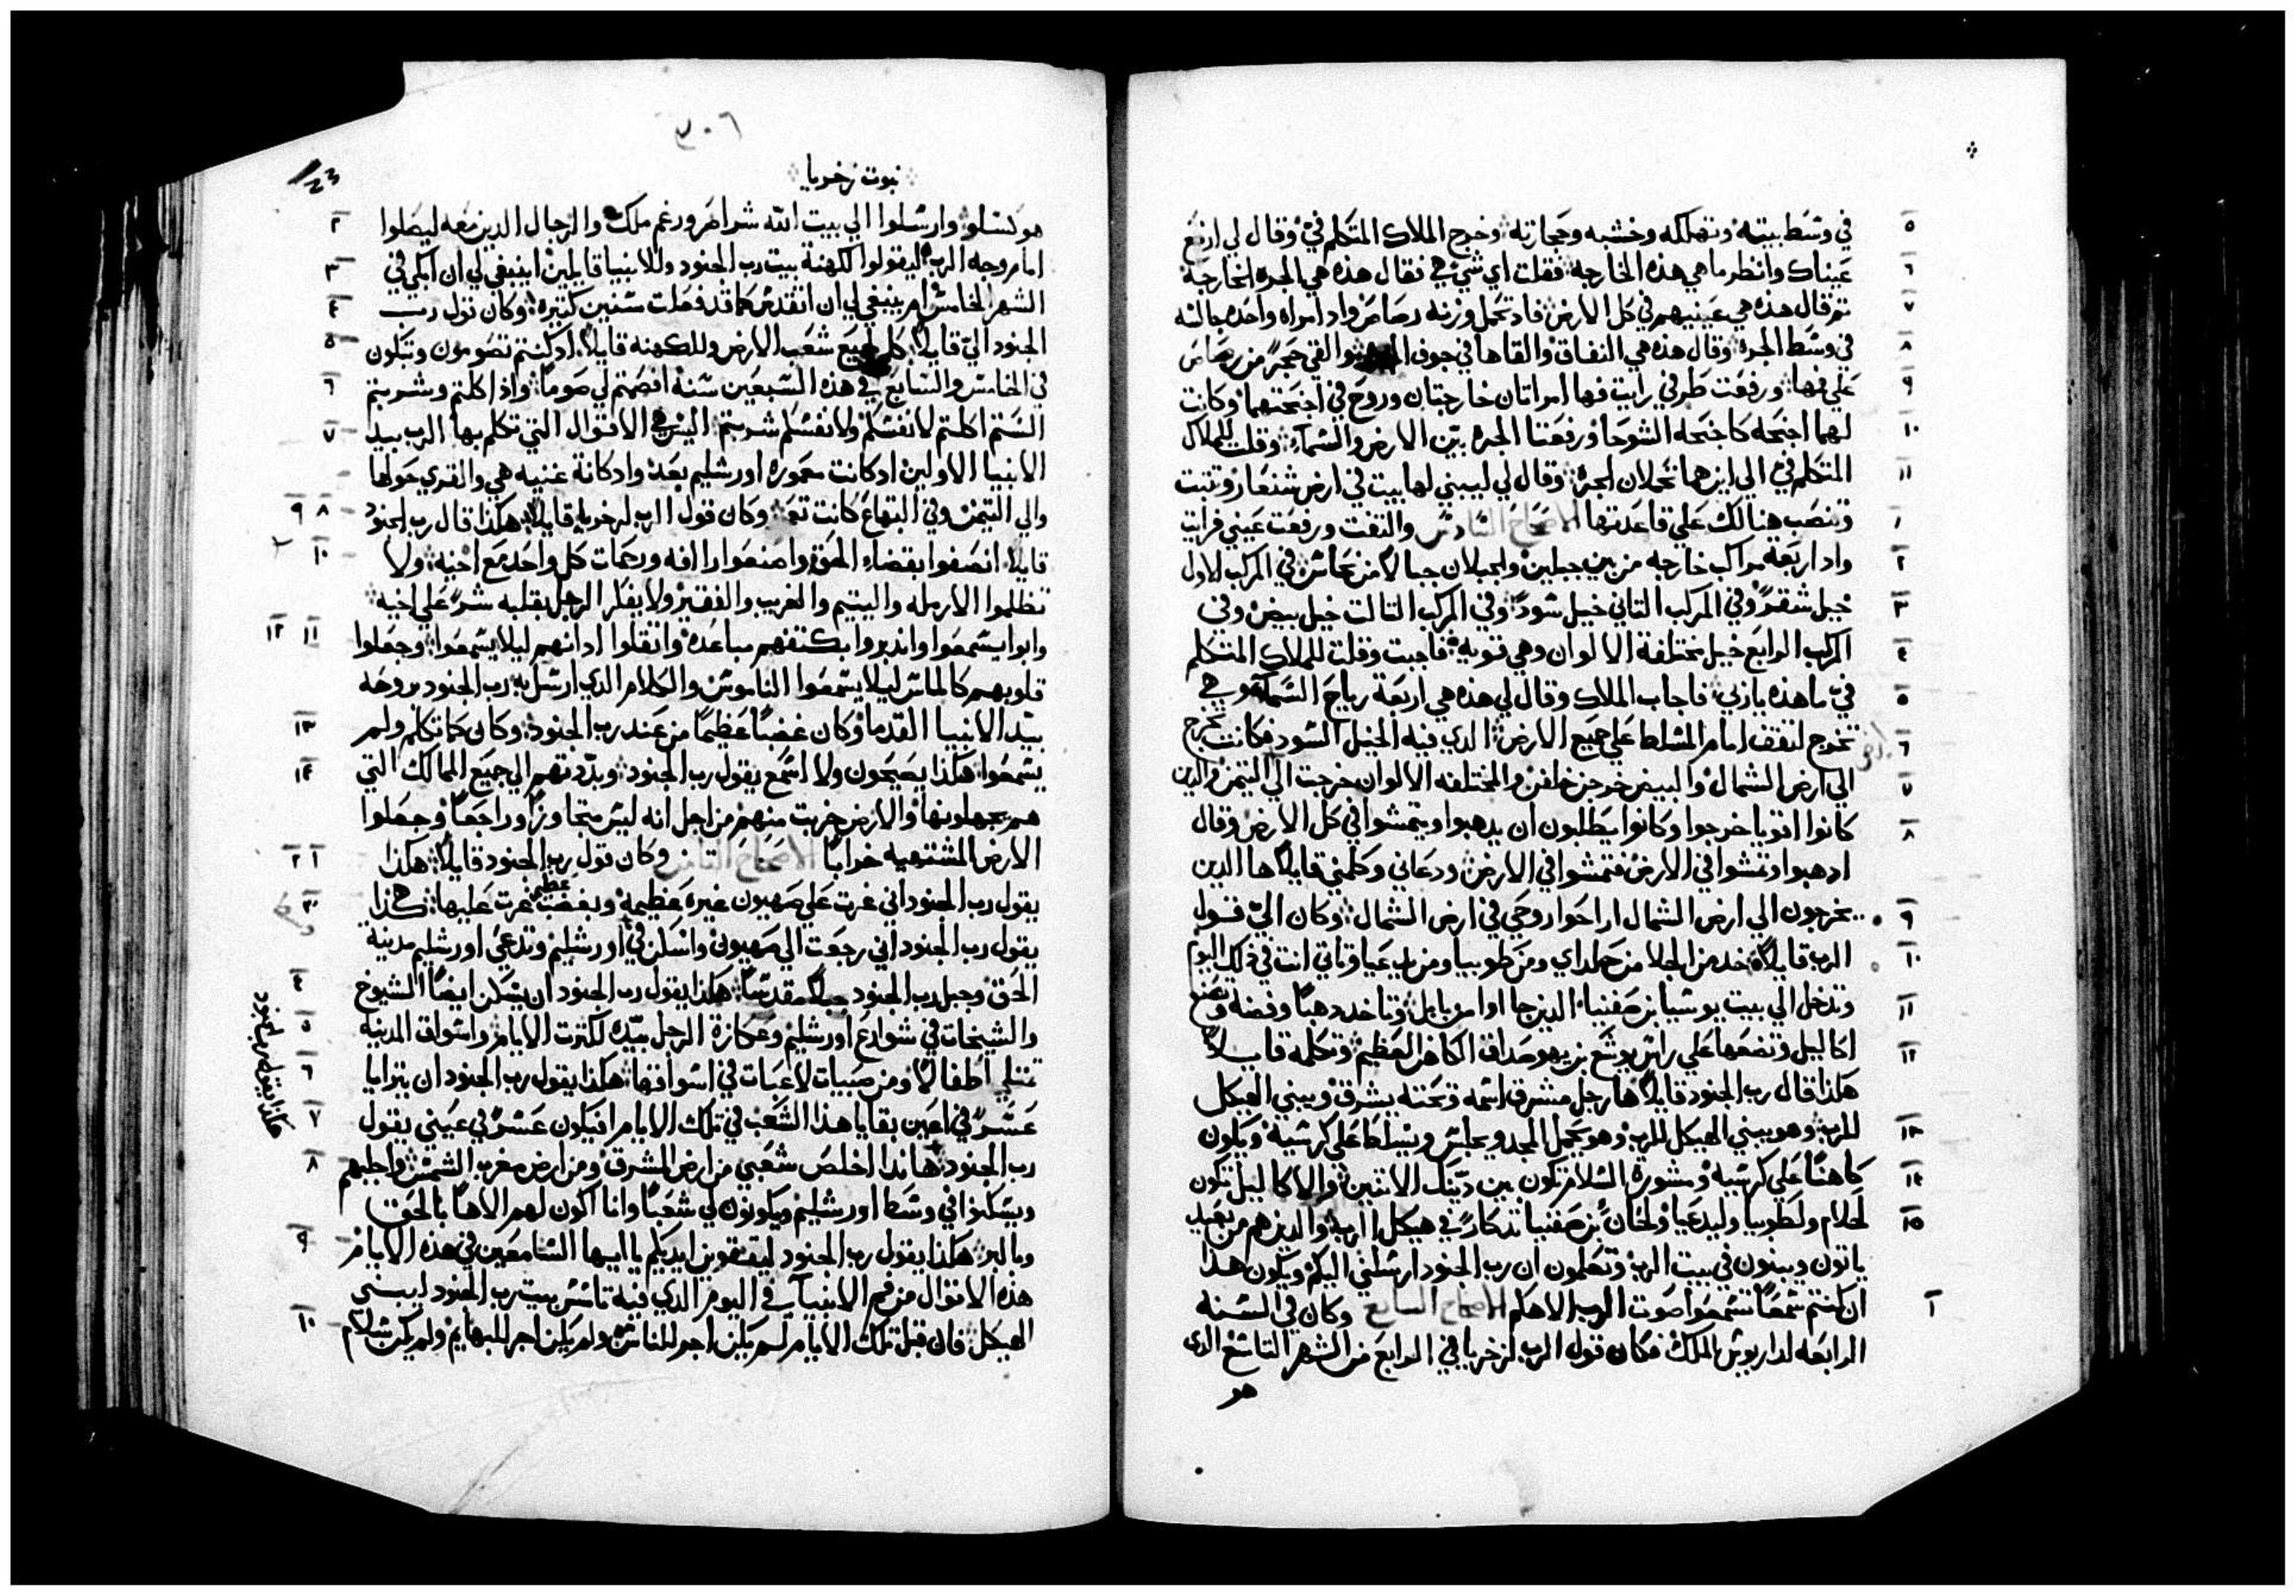 في وسط بيته وتهلكه وخشبه وحجارته وخرج الملاك المتكلم فيّ وقال لي ارفع
٥
عيناك وانظر ما هي هذه الخارجه فقلت اي شي هي فقال هذه هي الجره الخارجة
٦
تم قال هذه هي عينيهم في كل الارض فاد تحمل وزنه رصاص واد امراه واحده جالسه
٧
في وسط الجره وقال هذه هي النفاق والقاها في جوف والقي حجرً من رصاص
٨
علي فمها ورفعت طرفي رايت فها امراتان خارجتان وروح في اجنحتهما وكانت
٩
لهما اجنحه كاجنحه الشوحا ورفعتا الجره بين الارض والسمآء وقلت للملاك
١٠
المتكلم فيّ الي اين هما تحملان الجره وقال لي ليبني لها بيت في ارض شنعار وتتبت
١١
وتنصب هنالك علي قاعدتها الاصحاح السادس والتفت ورفعت عيني فرايت
١
واد اربعة مراكب خارجه من بين جبلين والجبلان جبالاً من نحاس في المركب الاول
٢
خيل شقرً وفي المركب التاني خيل سودً وفي المركب التالت خيل بيض وفي
٣
المركب الرابع خيل مختلفة الالوان وهي قويه فاجبت وقلت للملاك المتكلم
٤
فيّ ما هذه يا ربي فاجاب الملاك وقال لي هذه هي اربعة رياح السمآء هي
٥
تخرج لتقف امام المسلط علي جميع الارض الدي فيه الخيل السود فكانت تخرج
٦
الي ارض الشمال والبيض خرجن خلفن والمختلفه الالوان خرجت الي التيمن والدين
٧
كانوا اقويا خرجوا وكانوا يطلبون ان يدهبوا ويتمشوا في كل الارض وقال
٨
ادهبوا وتمشوا في الارض فتمشوا في الارض ودعاني وكلمني قايلاً ها الدين
يخرجون الي ارض الشمال اراحوا روحي في ارض الشمال وكان اليّ قول
٩
الرب قايلاً خد من الجلا من حلداي ومن طوبيا ومن يدعيا وتاتي انت في دلك اليوم
١٠
وتدخل الي بيت يوشيا بن صفنيا الدين جاوا من بابل وتاخد دهبًا وفضه وتصنع
١١
اكاليل وتضعها علي راس يوشع بن يهوصداق الكاهن العظيم وتكلمه قايلاً
١٢
هكذا قال رب الجنود قايلاً ها رجل مشرق اسمه وتحته يشرق ويبني الهيكل
للرب وهو يبني الهيكل للرب وهو يحمل المجد ويجلس ويسلط علي كرسيه ويكون
١٣
كاهنًا علي كرسيه ومشورة السلام تكون بين دينك الاتنين والاكاليل تكون
١٤
لحلام ولطوبيا وليدعيا ولخان بن صفنيا تدكارً في هيكل الرب والدين هم من بعيد
١٥
ياتون ويبنون في بيت الرب وتعلمون ان رب الجنود ارسلني اليكم ويكون هدا
ان كنتم سمعًا تسمعوا صوت الرب الاهكم الاصحاح السابع وكان في السنه
١
الرابعه لداريوش الملك فكان قول الرب لزخريا في الرابع من الشهر التاسع الدي
هو
٣٠٦
نبوت زخريا
هو كسلو وارسلوا الي بيت الله شراصر ورغم ملك والرجال الدين معه ليصلوا
٢
امام وجه الرب ليقولوا لكهنة بيت رب الجنود وللانبيا قايلين اينبغي لي ان ابكي في
٣
الشهر الخامس ام ينبغي لي ان اتقدس كما قد فعلت سنين كتيره وكان قول رب
٤
الجنود اليّ قايلاً كلم جميع شعب الارض وللكهنه قايلاً اد كنتم تصومون وتبكون
٥
في الخامس والسابع في هذه السبعين سنة افصمتم لي صومًا واذا اكلتم وشربتم
٦
الستم اكلتم لانفسكم ولانفسكم شربتم اليس هي الاقوال التي تكلم بها الرب بيد
٧
الانبيا الاولين اد كانت معموره اورشليم بعد واد كانة غنيه هي والقري حولها
والي التيمن وفي البقاع كانت تعم وكان قول الرب لزخريا قايلاً هكذا قال رب الجنود
٨ ٩
قايلاً انصفوا بقضاء الحق واصنعوا رافه ورحمات كل واحد مع اخيه ولا
١٠
تظلموا الارمله واليتيم والغريب والفقير ولا يفكر الرجل بقلبه شرً علي اخيه
وابوا يسمعوا واندبروا بكتفهم مباعده واتقلوا ادانهم ليلا يسمعوا وجعلوا
١١ ١٢
قلوبهم كالماس ليلا يسمعوا الناموس والكلام الدي ارسل به رب الجنود بروحه
بيد الانبيا القدما وكان غضبًا عظيمًا من عند رب الجنود وكان كما تكلم ولم
١٣
يسمعوا هكذا يصيحون ولا اسمع يقول رب الجنود وبدّدتهم الي جميع الممالك التي
١٤
هم يجهلونها والارض خربت منهم من اجل انه ليس متجاوزًا وراجعًا وجعلوا
الارض المشتهيه خرابًا الاصحاح التامن وكان قول رب الجنود قايلاً هكذا
١ ٢
يقول رب الجنود اني غرت علي صهيون غيره عظيمة وبغضب عظيم غرت عليها هكذا
٣
يقول رب الجنود اني رجعت الي صهيون واسكن في اورشليم وتدعي اورشليم مدينة
الحق وجبل رب الجنود جبلاً مقدسًا هكذا يقول رب الجنود ان يسكن ايضًا الشيوخ
٤
والشيخات في شوارع اورشليم وعكازة الرجل بيده لكترت الايام واسواق المدينه
٥
تمتلي اطفالاً ومن صبيات لاعبات في اسواقها هكذا يقول رب الجنود ان يترايا
٦
عسرً في اعين بقايا هذا الشعب في تلك الايام افيكون عسرً في عيني يقول
٧
هكذا يقول رب الجنود
رب الجنود هاندا اخلص شعبي من ارض المشرق ومن ارض مغرب الشمس واجلبهم
٨
ويسكنوا في وسط اورشليم ويكونون لي شعبًا وانا اكون لهم الاهًا بالحق
وبالبر هكذا يقول رب الجنود ليتقوين ايديكم يا ايها السامعين في هذه الايام
٩
هذه الاقوال من فم الانبيآء في اليوم الدي فيه تاسس بيت رب الجنود ليبني
الهيكل فان قبل تلك الايام لم يكن اجر للناس ولم يكن اجر للبهايم ولم يكن سلام
١٠